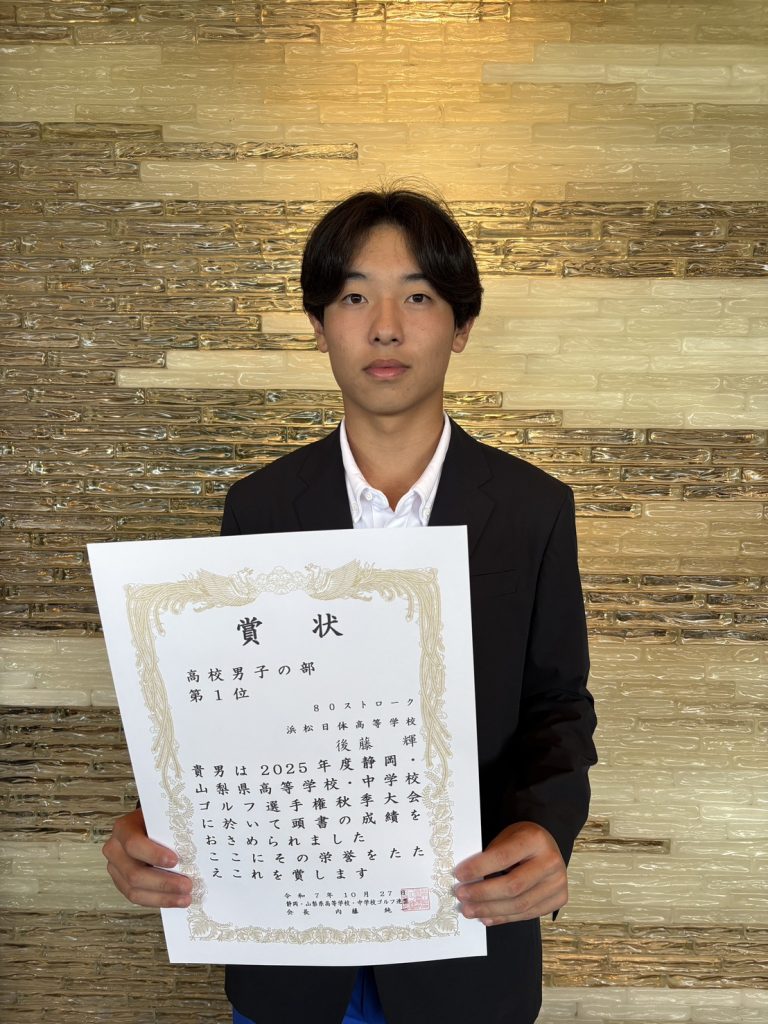 賞状
高校男子の部
第1位
80ストローク
浜松日体高等学校
後藤 輝
貴男は2025年度静岡・
山梨県高等学校・中学校
ゴルフ選手権秋季大会
に於いて頭書の成績を
おさめられました
ここにその栄誉をたた
えこれを賞します
令和7年10月27日
静岡・山梨県高等学校・中学校ゴルフ連盟
会長 内藤 純一